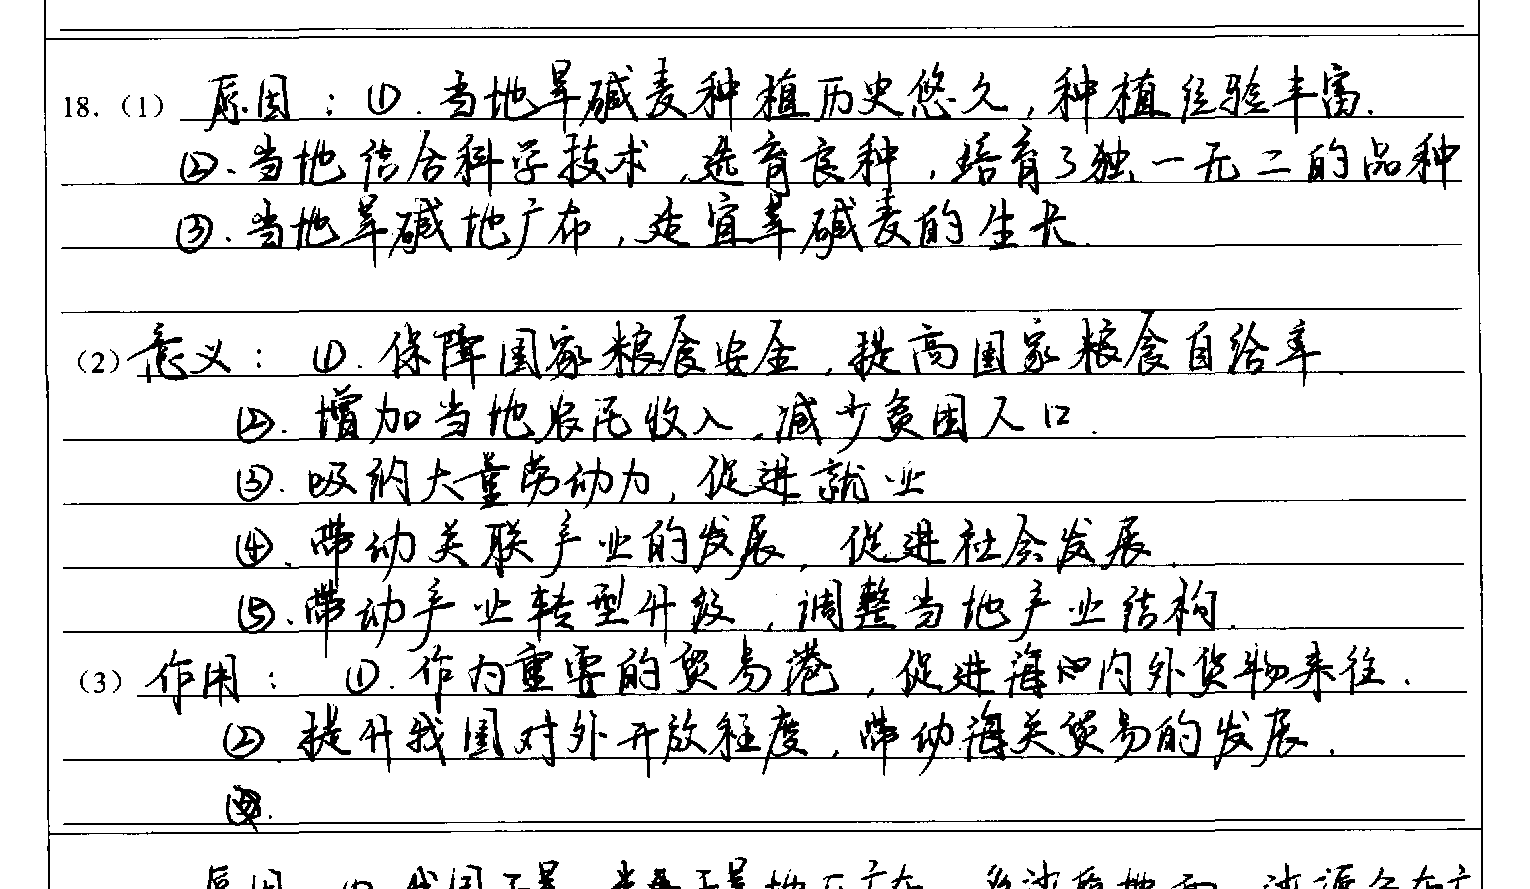 18.（1） 原因：①.当地旱碱麦种植历史悠久,种植经验丰富.
②.当地结合科学技术,选育良种,培育了独一无二的品种
③.当地旱碱地广布,适宜旱碱麦的生长.
（2）意义：①.保障国家粮食安全,提高国家粮食自给率.
②.增加当地农民收入,减少贫困人口.
③.吸纳大量劳动力,促进就业
④.带动关联产业的发展,促进社会发展.
⑤.带动产业转型升级,调整当地产业结构.
（3）作用：①.作为重要的贸易港,促进海内外货物来往.
② 提升我国对外开放程度,带动海关贸易的发展.
原因